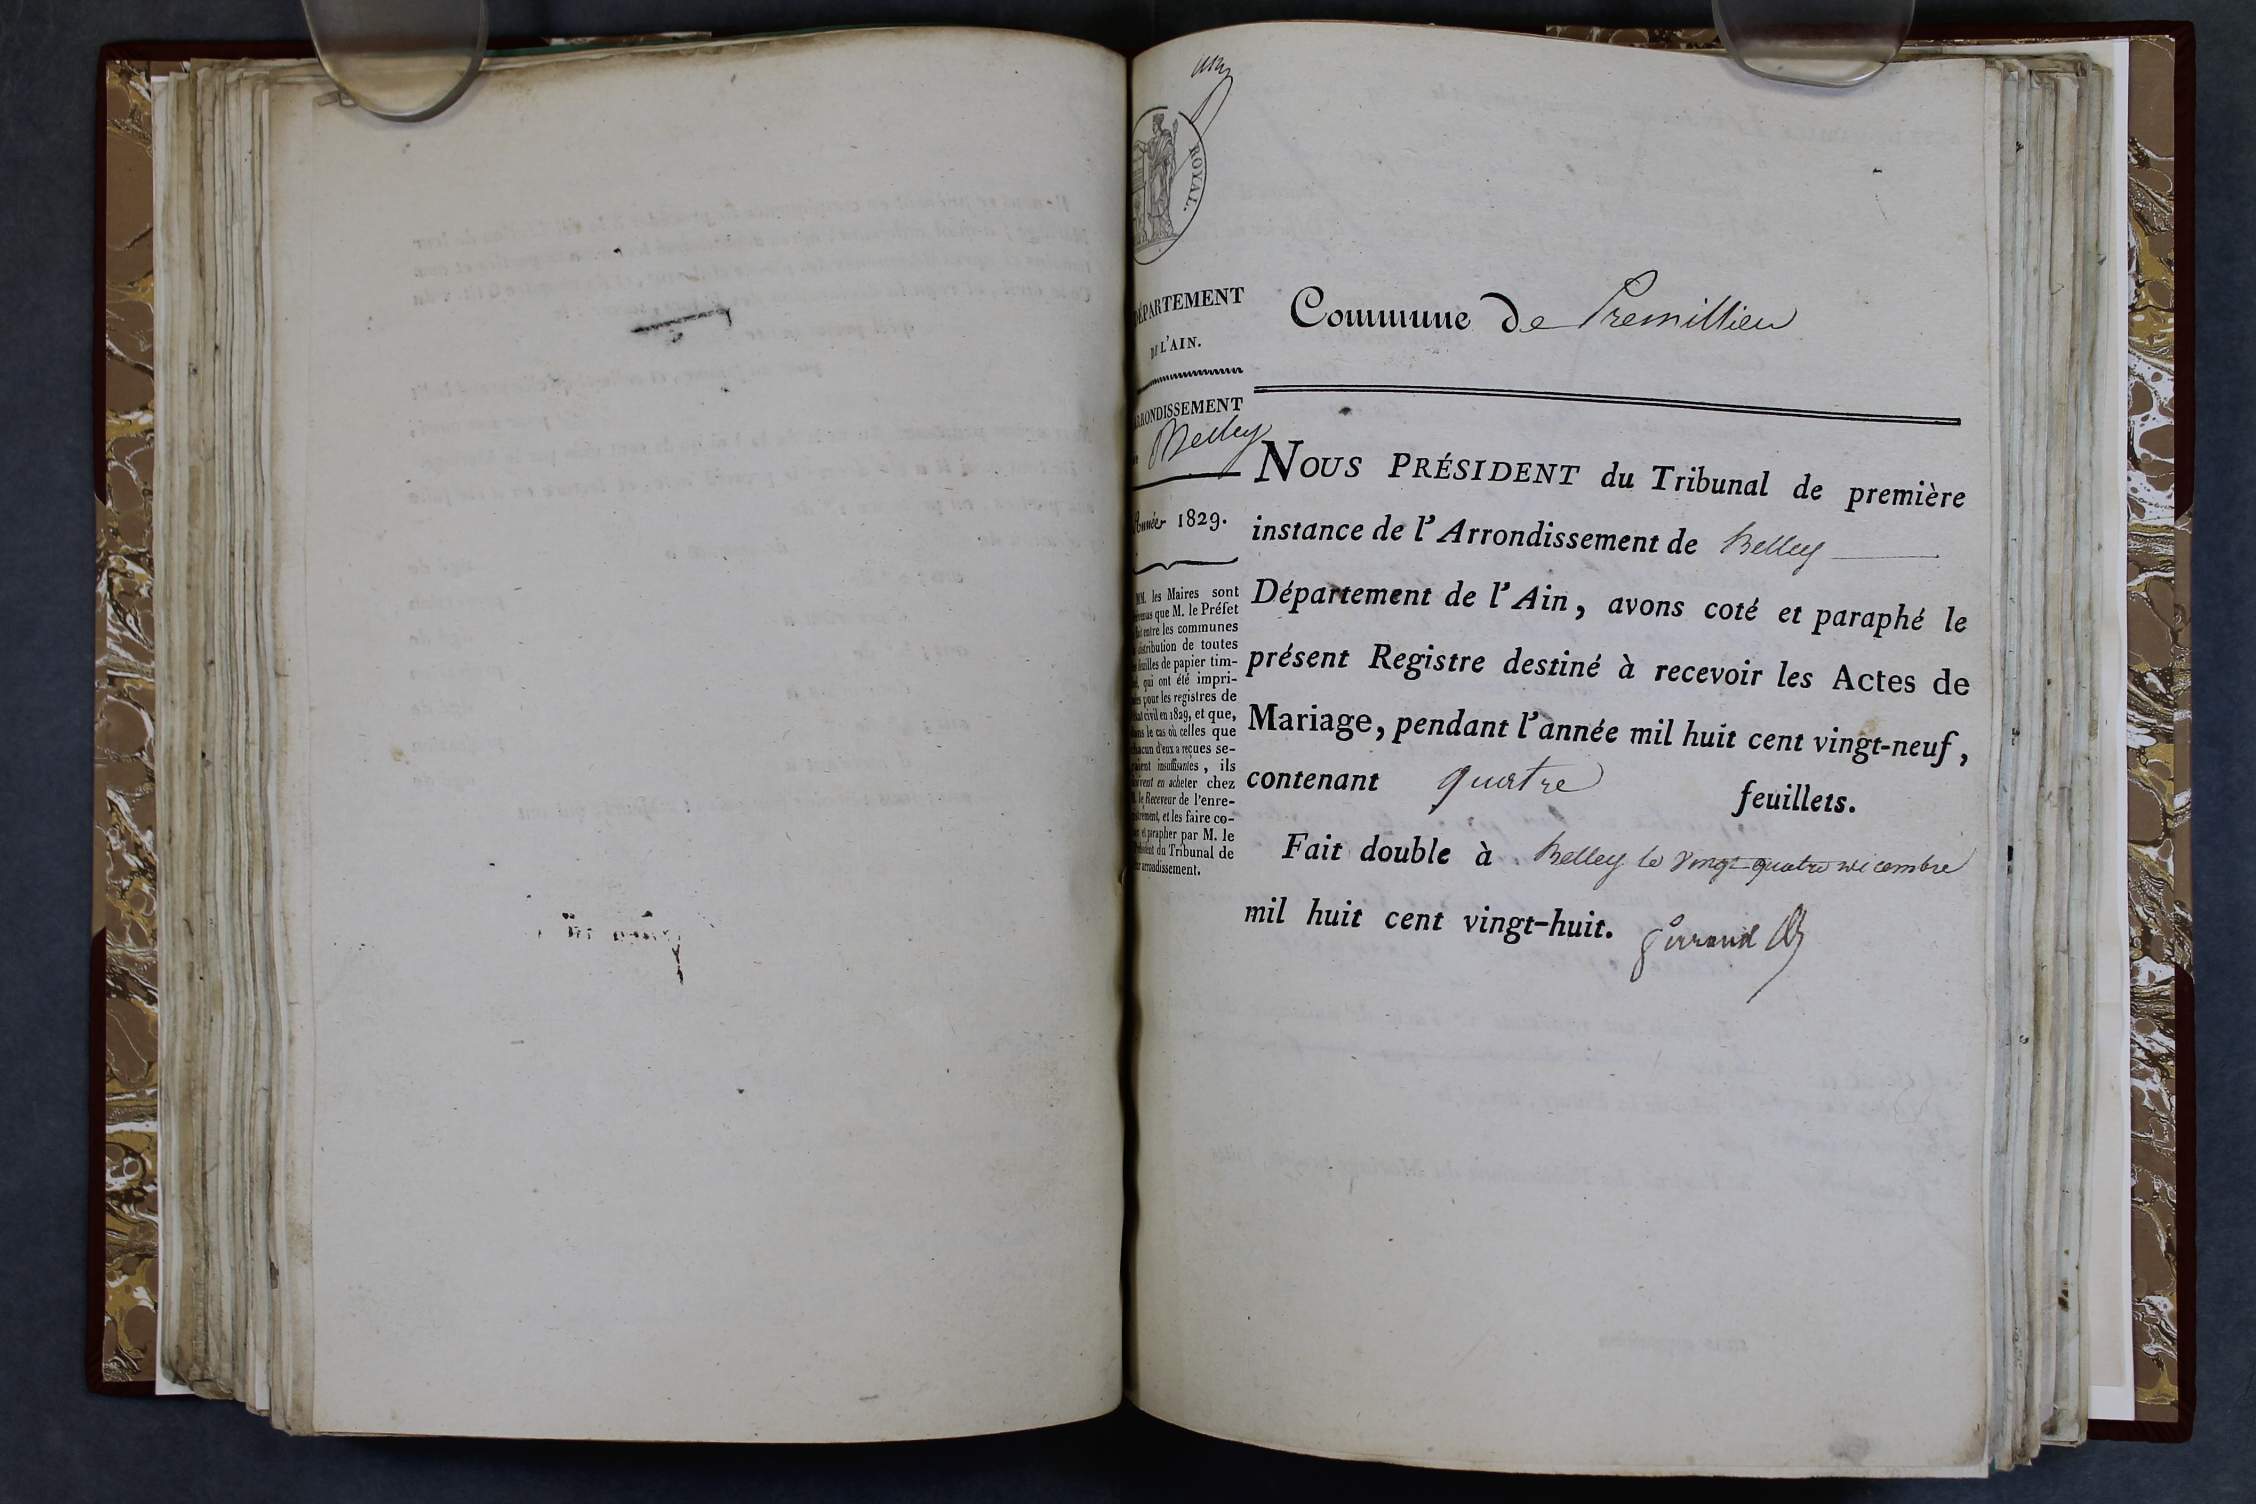 un
ROYAL.
DÉPARTEMENT
DE L'AIN.
ARRONDISSEMENT
de Belley
Année 1829.
MM. les Maires sont
prévenus que M. le Préfet
a fait entre les communes
la distribution de toutes
les feuilles de papier tim-
bré, qui ont été impri-
mées pour les registres de
l'état civil en 1829, et que,
dans le cas où celles que
chacun d'eux a reçues se-
raient insuffisantes, ils
doivent en acheter chez
M. le Receveur de l'enre-
gistrement, et les faire co-
ter et parapher par M. le
Président du Tribunal de
leur arrondissement.
Commune de Premillieu
NOUS PRÉSIDENT du Tribunal de première
instance de l'Arrondissement de Belley
Département de l'Ain, avons coté et paraphé le
présent Registre destiné à recevoir les Actes de
Mariage, pendant l'année mil huit cent vingt-neuf,
contenant quatre feuillets.
Fait double à Belley le vingt-quatre décembre
mil huit cent vingt-huit.